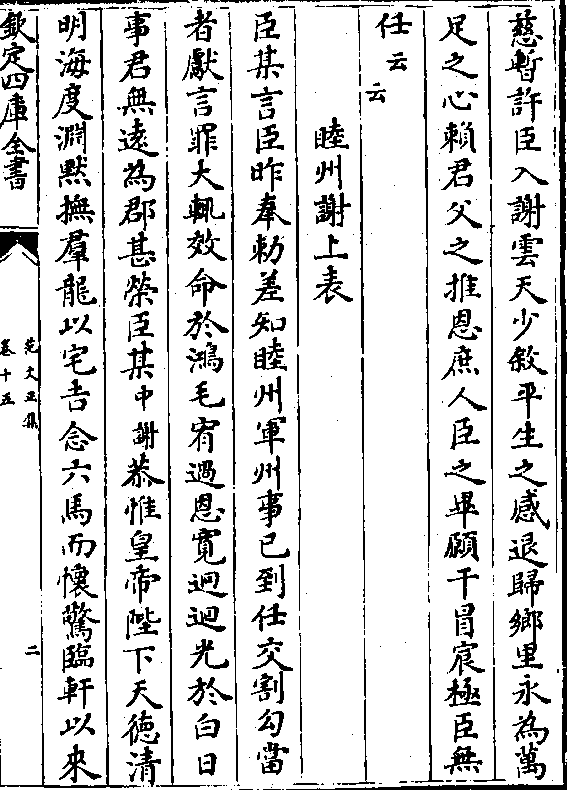 慈暫許臣入謝雲天少敘平生之感退歸鄉里永為萬
足之心賴君父之推恩庶人臣之畢願干冒宸極臣無
任云云
睦州謝上表
臣某言臣昨奉勅差知睦州軍州事已到任交割勾當
者獻言罪大輒效命於鴻毛宥過恩寛迥迴光於白日
事君無遠為郡甚榮臣某中謝恭惟皇帝陛下天徳清
明海度淵黙撫羣龍以宅吉念六馬而懷驚臨軒以來
欽定四庫全書
范文正集
卷十五
二